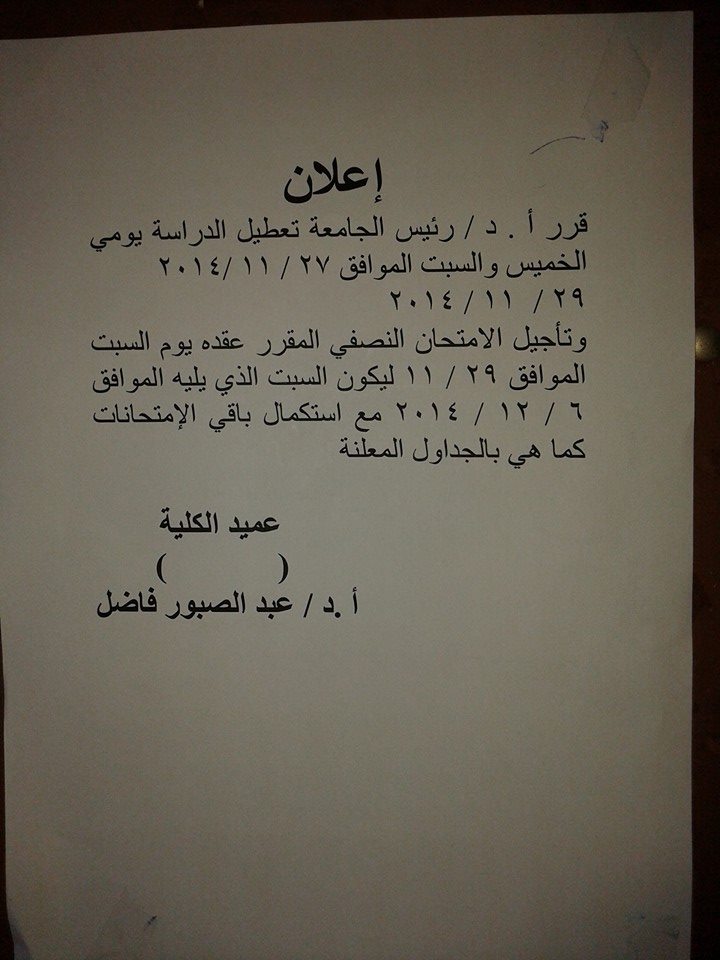 إعلان
قرر أ . د / رئيس الجامعة تعطيل الدراسة يومي
الخميس والسبت الموافق ٢٧ / ١١ /٢٠١٤
٢٩ / ١١ / ٢٠١٤
وتأجيل الامتحان النصفي المقرر عقده يوم السبت
الموافق ٢٩ / ١١ ليكون السبت الذي يليه الموافق
٦ / ١٢ / ٢٠١٤ مع استكمال باقي الإمتحانات
كما هي بالجداول المعلنة
عميد الكلية
( )
أ .د / عبد الصبور فاضل